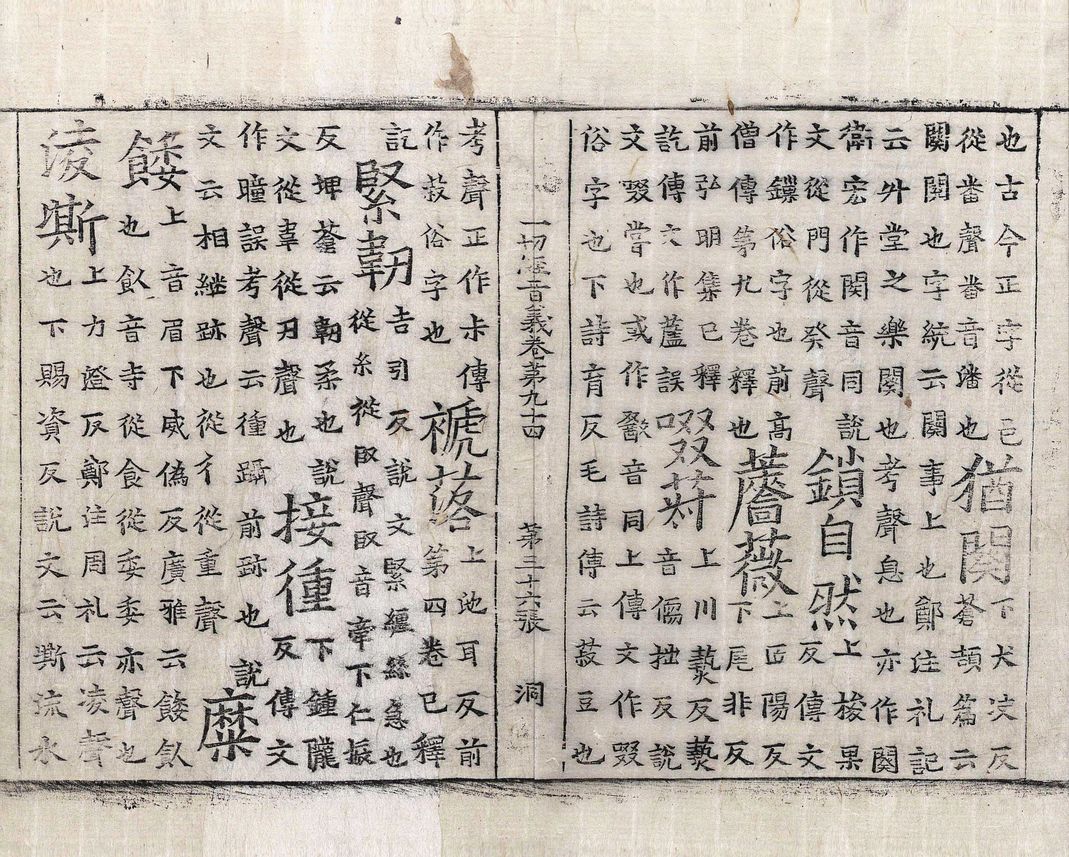 也古今正字從邑猶闋下犬決反
從番聲番音潘也蒼頡篇云
闋闋也字統云闋事上也鄭注礼記
云外堂之樂闋也考聲息也亦作闋
衛宏作闋音同說鎖自然上桉果
文從門從癸聲反傳文
作鏁俗字也前高薔薇上匠陽反
僧傳第九卷釋也下尾非反
前弘明集已釋啜菽上川爇反爇
訖傳文作蘆誤音儒拙反說
文啜嘗也或作歠音同上傳文作啜
俗字也下詩育反毛詩傳云菽豆也
一切經音義卷第九十四 第三十六張 洞
考聲正作尗傳褫落上池耳反前
作菽俗字也第四卷已釋
訖緊韌吉引反說文緊纏絲急也
從糸從臤聲臤音牽下仁振
反埤蒼云韌柔也說接徸下鍾隴
文從韋從刃聲也反傳文
作瞳誤考聲云徸躡前跡也說糜
文云相継跡也從彳從重聲
餧上音眉下威偽反廣雅云餧飤
也飤音寺從食從委委亦聲也
凌嘶上力澄反鄭注周礼云凌聲
也下賜資反說文云嘶流氷